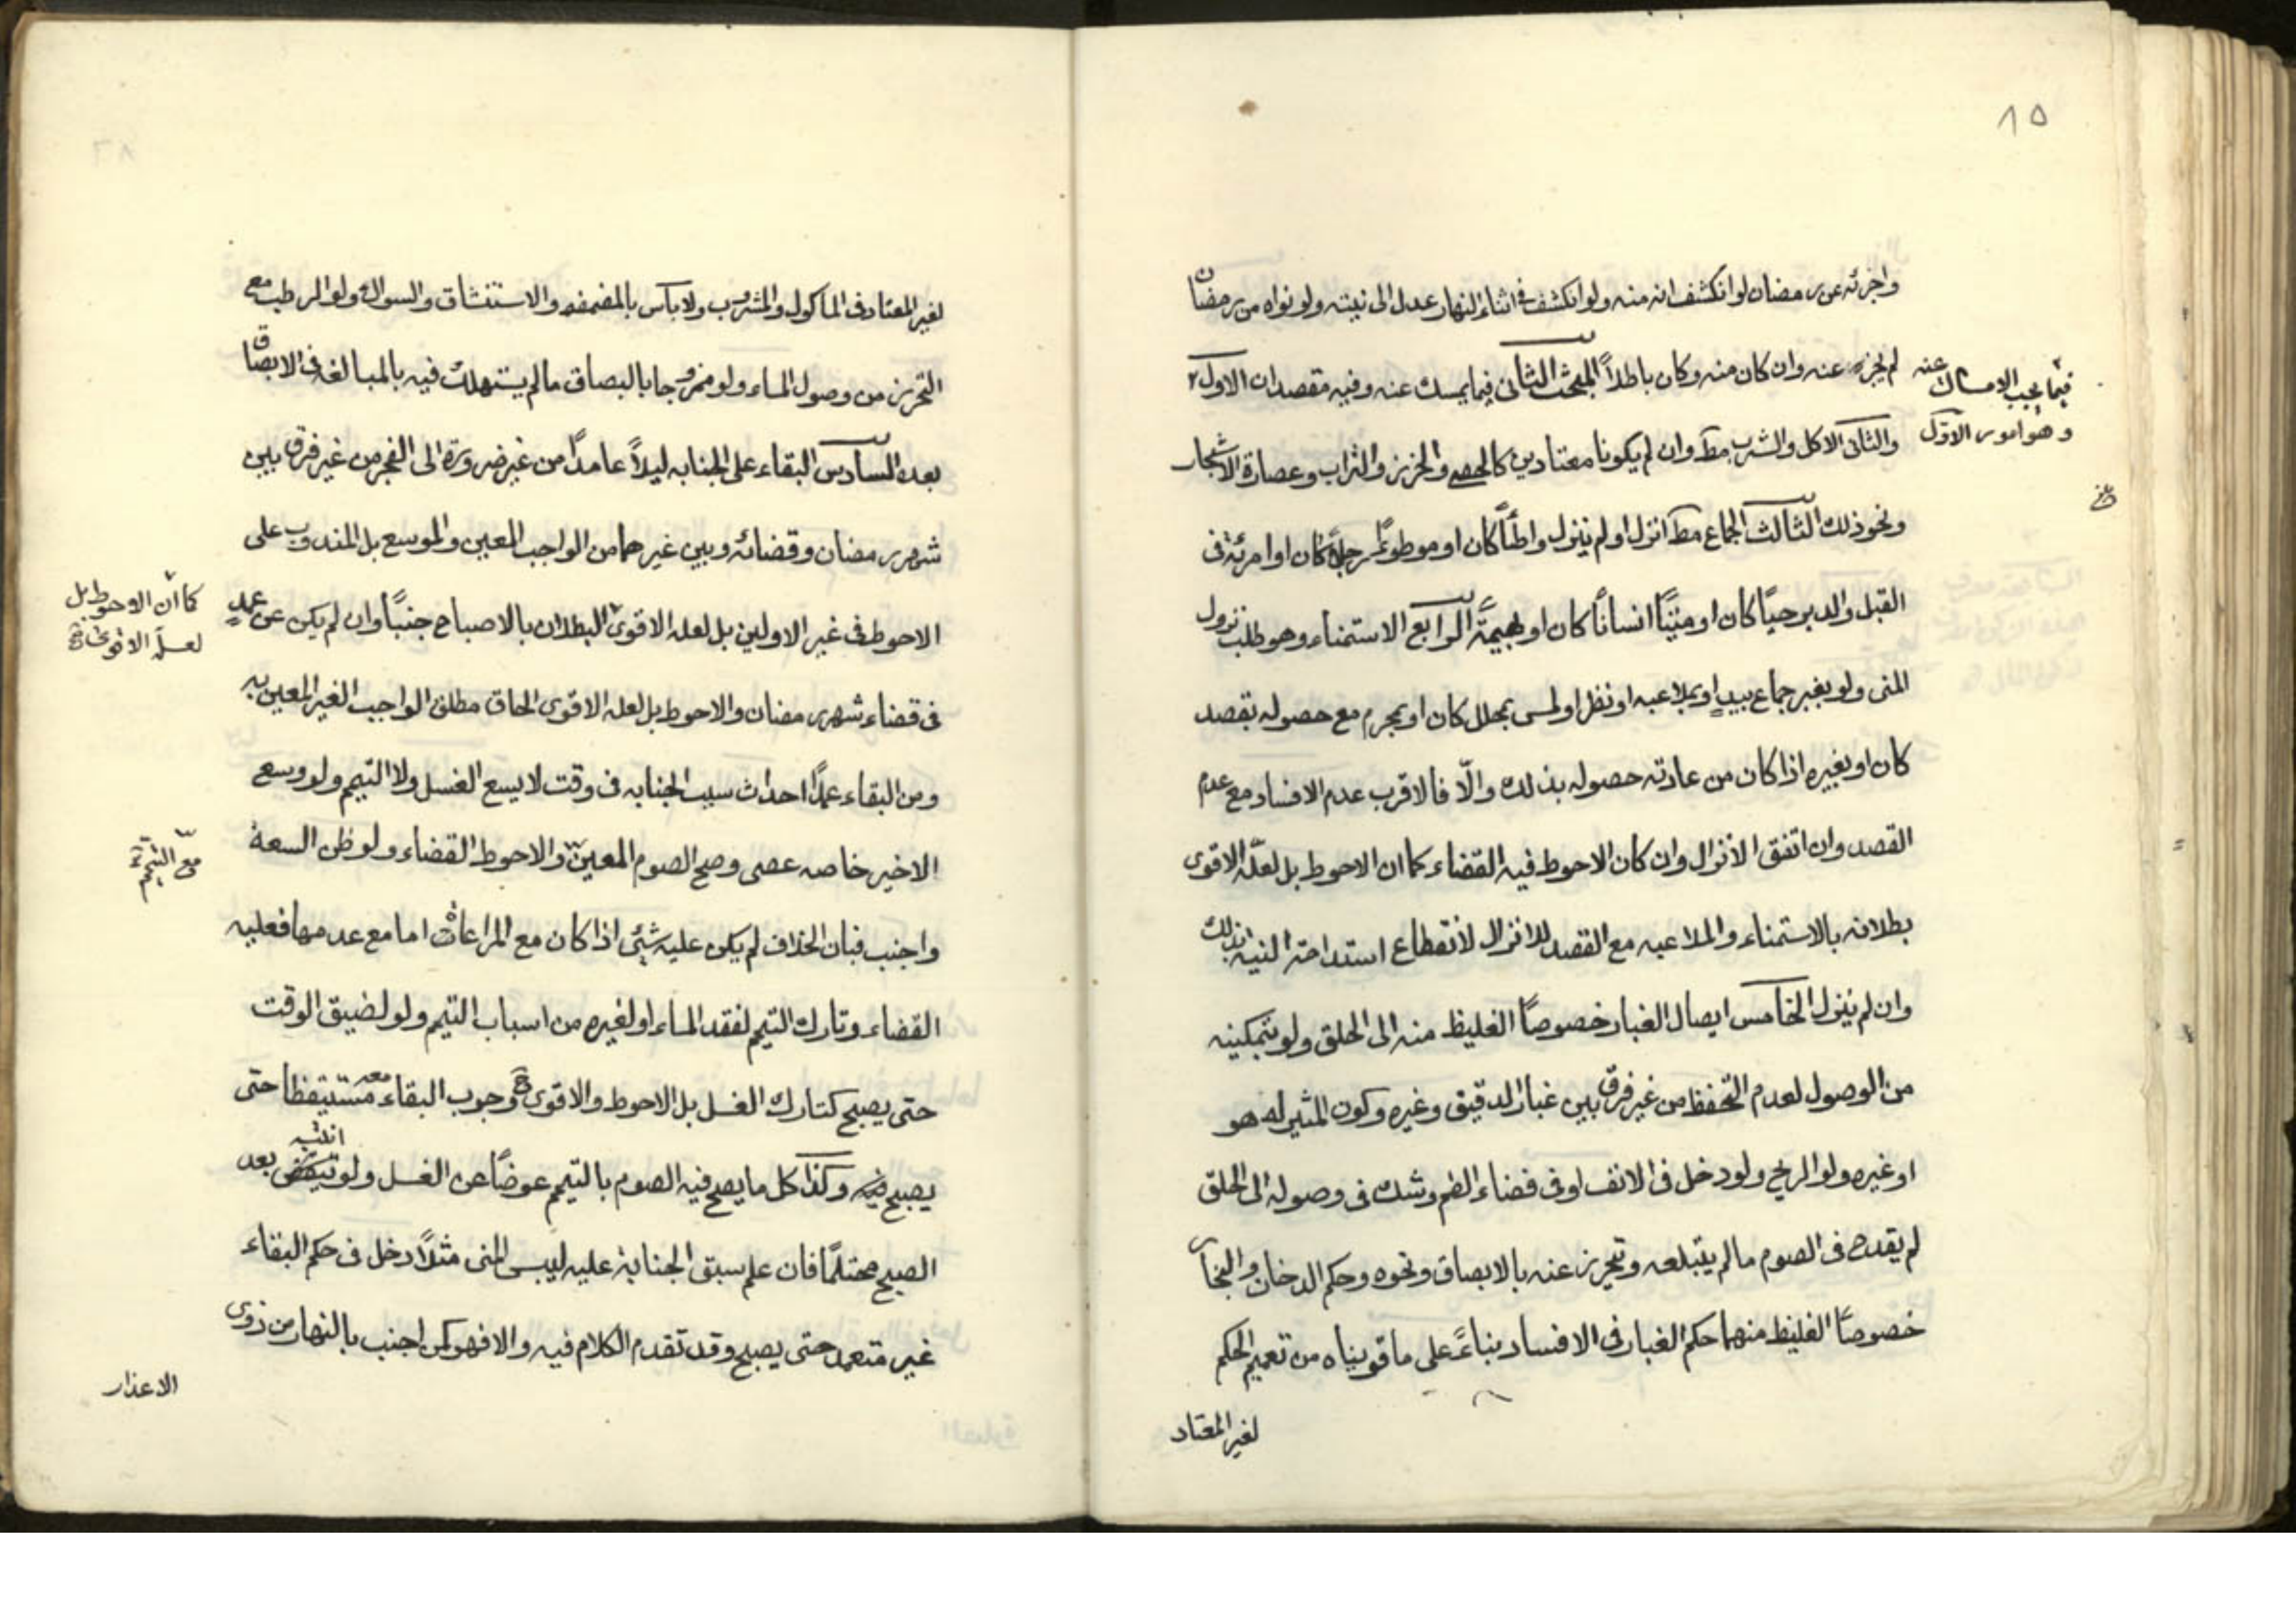 ٨٥
واجزئه عن رمضان لو انكشف انه منه ولو انكشف فى اثناء النهار عدل الى نيته ولو نواه من رمضان
لم يجزه عنه وان كان منه وكان باطلاً المبحث الثانى فيما يمسك عنه وفيه مقصدان الاول
فيما يجب الامساك عنه
وهو امور الاوّل
والثانى الاكل والشرب مط وان لم يكونا معتادين كالحصى والخرز والتراب وعصارة الاشجار
ونحو ذلك الثالث الجماع مط انزل او لم ينزل واطئاً كان او موطوءً رجلاً كان او امرئة فى
القبل والدبر حيّاً كان او ميّتاً انساناً كان او بهيمة الرابع الاستمناء وهو طلب نزول
المنى ولو بغير جماع بيدٍ او بملاعبه او نظر او لمس بمحلل كان او بمحرم مع حصوله بقصد
كان او بغيره اذا كان من عادته حصوله بذلك والّا فالاقرب عدم الافساد مع عدم
القصد وان اتفق الانزال وان كان الاحوط فيه القضاء كما ان الاحوط بل لعلّه الاقوى
بطلانه بالاستمناء والملاعبه مع القصد للانزال لانقطاع استدامة النية بذلك
وان لم ينزل الخامس ايصال الغبار خصوصاً الغليظ منه الى الحلق ولو بتمكينه
من الوصول لعدم التحفظ من غير فرق بين غبار الدقيق وغيره وكون المثير له هو
او غيره ولو الريح ولو دخل فى الانف او فى فضاء الفم وشك فى وصوله الى الحلق
لم يقدح فى الصوم مالم يبتلعه وتحرز عنه بالابصاق ونحوه وحكم الدخان والبخار
خصوصاً الغليظ منهما حكم الغبار فى الافساد بناءً على ما قويناه من تعميم الحكم
لغير المعتاد
لغير المعتاد فى الماكول والمشروب ولا باس بالمضمضه والاستنشاق والسواك ولو الرطب مع
التحرز من وصول الماء ولو ممزوجا بالبصاق مالم يستهلك فيه بالمبالغه فى الابصاق
بعده السادس البقاء على الجنابه ليلاً عامداً من غير ضرورة الى الفجر من غير فرق بين
شهر رمضان وقضائه وبين غيرهما من الواجب المعين والموسع بل المندوب على
الاحوط فى غير الاولين بل لعله الاقوى البطلان بالاصباح جنباً وان لم يكن عن عمدٍ
كما ان الاحوط بل
لعلّه الاقوى
فى قضاء شهر رمضان والاحوط بل لعله الاقوى الحاق مطلق الواجب الغير المعين به
ومن البقاء عمداً احداث سبب الجنابه فى وقت لا يسع الغسل ولا التيمم ولو وسع
الاخير خاصه عصى وصح الصوم المعين والاحوط القضاء ولو ظن السعة
مع التيمم
واجنب فبان الخلاف لم يكن عليه شئ اذا كان مع المراعات اما مع عدمها فعليه
القضاء وتارك التيمم لفقد الماء او لغيره من اسباب التيمم ولو لضيق الوقت
حتى يصبح كتارك الغسل بل الاحوط والاقوى وجوب البقاء معه مستيقظا حتى
يصبح وكذا كل ما يصح فيه الصوم بالتيمم عوضاً عن الغسل ولو انتبه بعد
الصبح محتلماً فان علم سبق الجنابة عليه ليبس المنى مثلاً دخل فى حكم البقاء
غير متعمد حتى يصبح وقد تقدم الكلام فيه والا فهو كمن اجنب بالنهار من ذوى
الاعذار